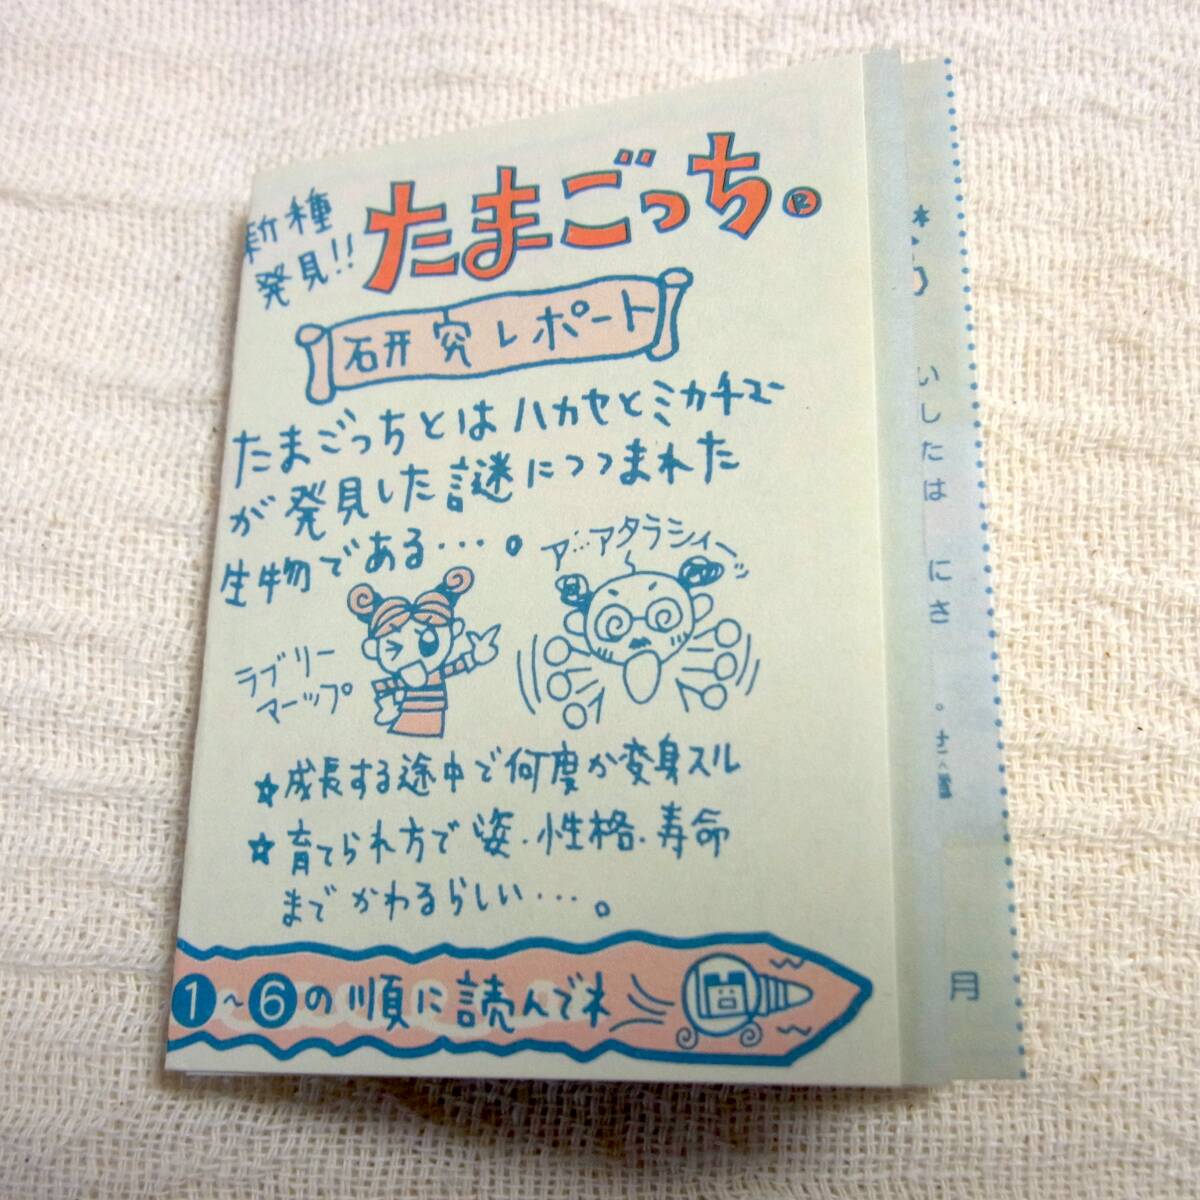 新種
発見!!
たまごっち®
研究レポート
たまごっちとはハカセとミカチュー
が発見した謎につつまれた
生物である…。
ア…アタラシィー
ラブリー
マーップ
☆成長する途中で何度か変身スル
☆育てられ方で姿・性格・寿命
までかわるらしい…。
1〜6の順に読んでネ
いしたは
にさ
月